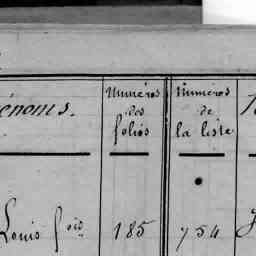 énoms. Numéros des folios Numéros de la liste
Louis 185 754